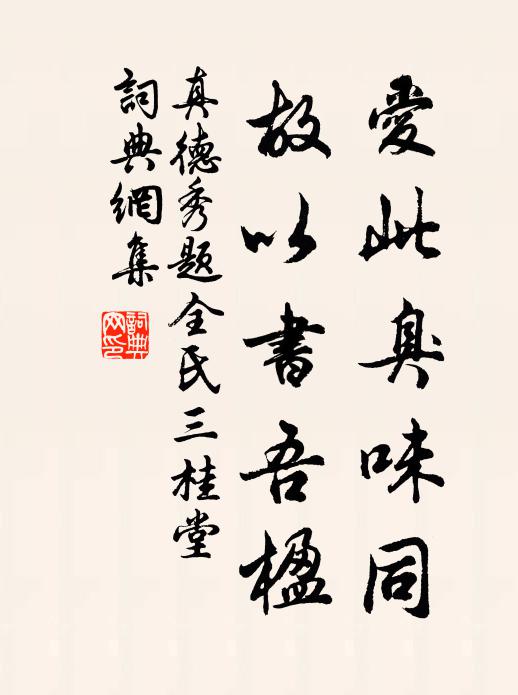 愛此臭味同
故以書吾楹
真德秀題全氏三桂堂
詞典網集
詞典网印